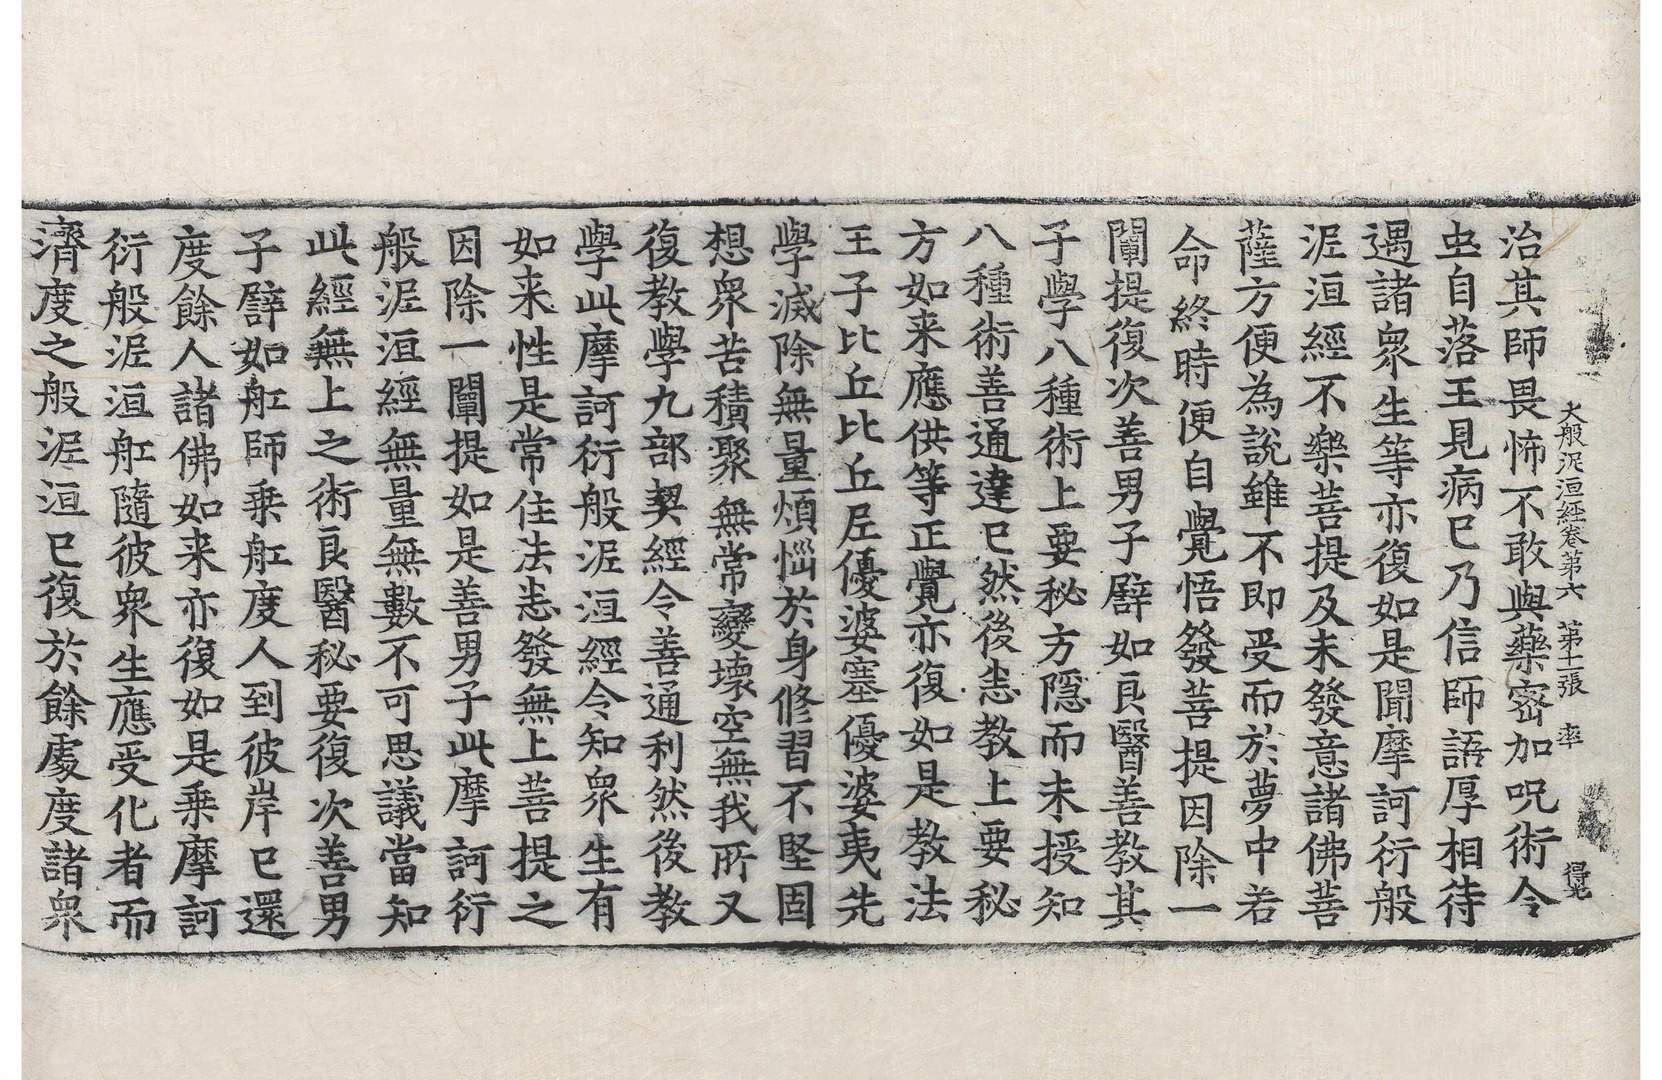 大般泥洹經卷第六　第十一張　率　得光
治其師畏怖不敢與藥密加呪術令
虫自落王見病已乃信師語厚相待
遇諸衆生等亦復如是聞摩訶衍般
泥洹經不樂菩提及未發意諸佛菩
薩方便為說雖不即受而於夢中若
命終時便自覺悟發菩提因除一
闡提復次善男子譬如良醫善教其
子學八種術上要秘方隱而未授知
八種術善通達已然後恚教上要秘
方如来應供等正覺亦復如是教法
王子比丘比丘尼優婆塞優婆夷先
學滅除無量煩惱於身修習不堅固
想衆苦積聚無常變壞空無我所又
復教學九部契經令善通利然後教
學此摩訶衍般泥洹經令知衆生有
如来性是常住法恚發無上菩提之
因除一闡提如是善男子此摩訶衍
般泥洹經無量無數不可思議當知
此經無上之術良醫秘要復次善男
子譬如舡師乗舡度人到彼岸已還
度餘人諸佛如来亦復如是乗摩訶
衍般泥洹舡隨彼衆生應受化者而
濟度之般泥洹已復於餘處度諸衆